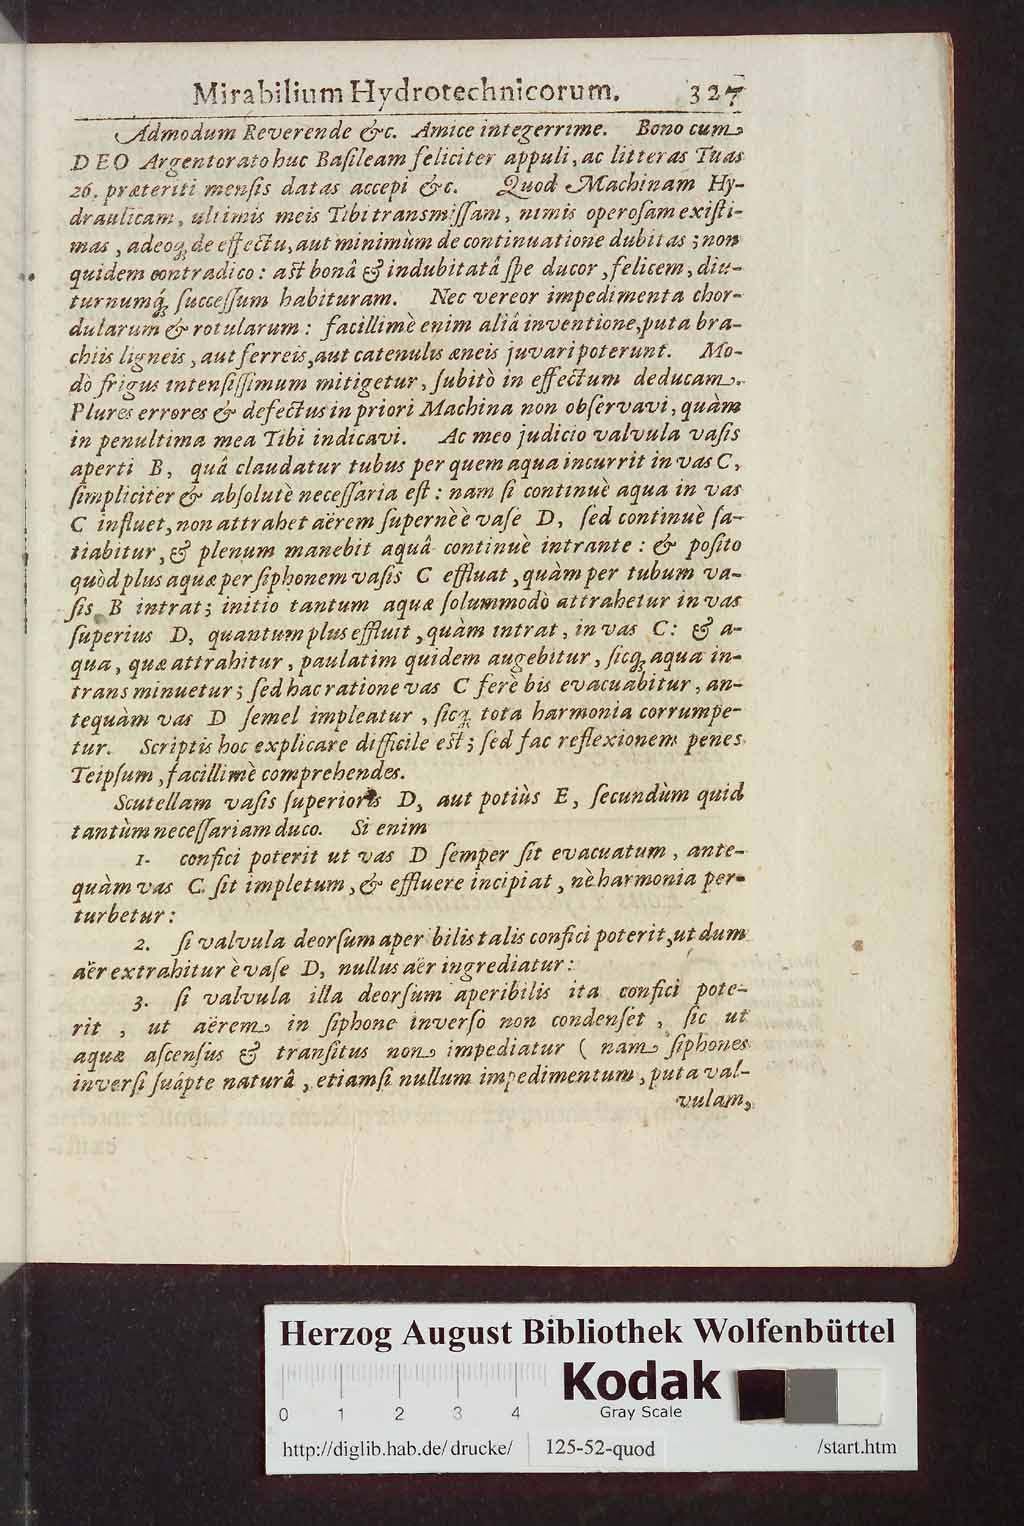 Mirabilium Hydrotechnicorum. 327
Admodum Reverende &c. Amice integerrime. Bono cum
DEO Argentorato huc Baſileam feliciter appuli, ac litteras Tuas
26. præteriti menſis datas accepi &c. Quod Machinam Hy-
draulicam, ultimis meis Tibi transmiſſam, nimis operoſam exiſti-
mas, adeoq; de effectu, aut minimùm de continuatione dubitas; non
quidem contradico: aſt bonâ & indubitatâ ſpe ducor, felicem, diu-
turnumq́; ſucceſſum habituram. Nec vereor impedimenta chor-
dularum & rotularum: facillimè enim aliâ inventione, puta bra-
chiis ligneis, aut ferreis, aut catenulis æneis juvari poterunt. Mo-
dò frigus intenſiſſimum mitigetur, ſubitò in effectum deducam.
Plures errores & defectus in priori Machina non obſervavi, quàm
in penultima mea Tibi indicavi. Ac meo judicio valvula vaſis
aperti B, quâ claudatur tubus per quem aqua incurrit in vas C,
ſimpliciter & abſolutè neceſſaria eſt: nam ſi continuè aqua in vas
C influet, non attrahet aërem ſupernè è vaſe D, ſed continuè ſa-
tiabitur, & plenum manebit aquâ continuè intrante: & poſito
quòd plus aquæ per ſiphonem vaſis C effluat, quàm per tubum va-
ſis B intrat; initio tantum aquæ ſolummodò attrahetur in vas
ſuperius D, quantum plus effluit, quàm intrat, in vas C: & a-
qua, quæ attrahitur, paulatim quidem augebitur, ſicq; aqua in-
trans minuetur; ſed hac ratione vas C ferè bis evacuabitur, an-
tequàm vas D ſemel impleatur, ſicq; tota harmonia corrumpe-
tur. Scriptis hoc explicare difficile eſt; ſed fac reflexionem penes
Teipſum, facillimè comprehendes.
Scutellam vaſis ſuperioris D, aut potiùs E, ſecundùm quid
tantùm neceſſariam duco. Si enim
1. confici poterit ut vas D ſemper ſit evacuatum, ante-
quàm vas C ſit impletum, & effluere incipiat, nè harmonia per-
turbetur:
2. ſi valvula deorſum aperibilis talis confici poterit, ut dum
aër extrahitur è vaſe D, nullus aër ingrediatur:
3. ſi valvula illa deorſum aperibilis ita confici pote-
rit, ut aërem in ſiphone inverſo non condenſet, ſic ut
aquæ aſcenſus & tranſitus non impediatur (nam ſiphones
inverſi ſuápte naturâ, etiamſi nullum impedimentum, puta val-
vulam,
Herzog August Bibliothek Wolfenbüttel
Kodak
Gray Scale
0 1 2 3 4
http://diglib.hab.de/drucke/ 125-52-quod /start.htm